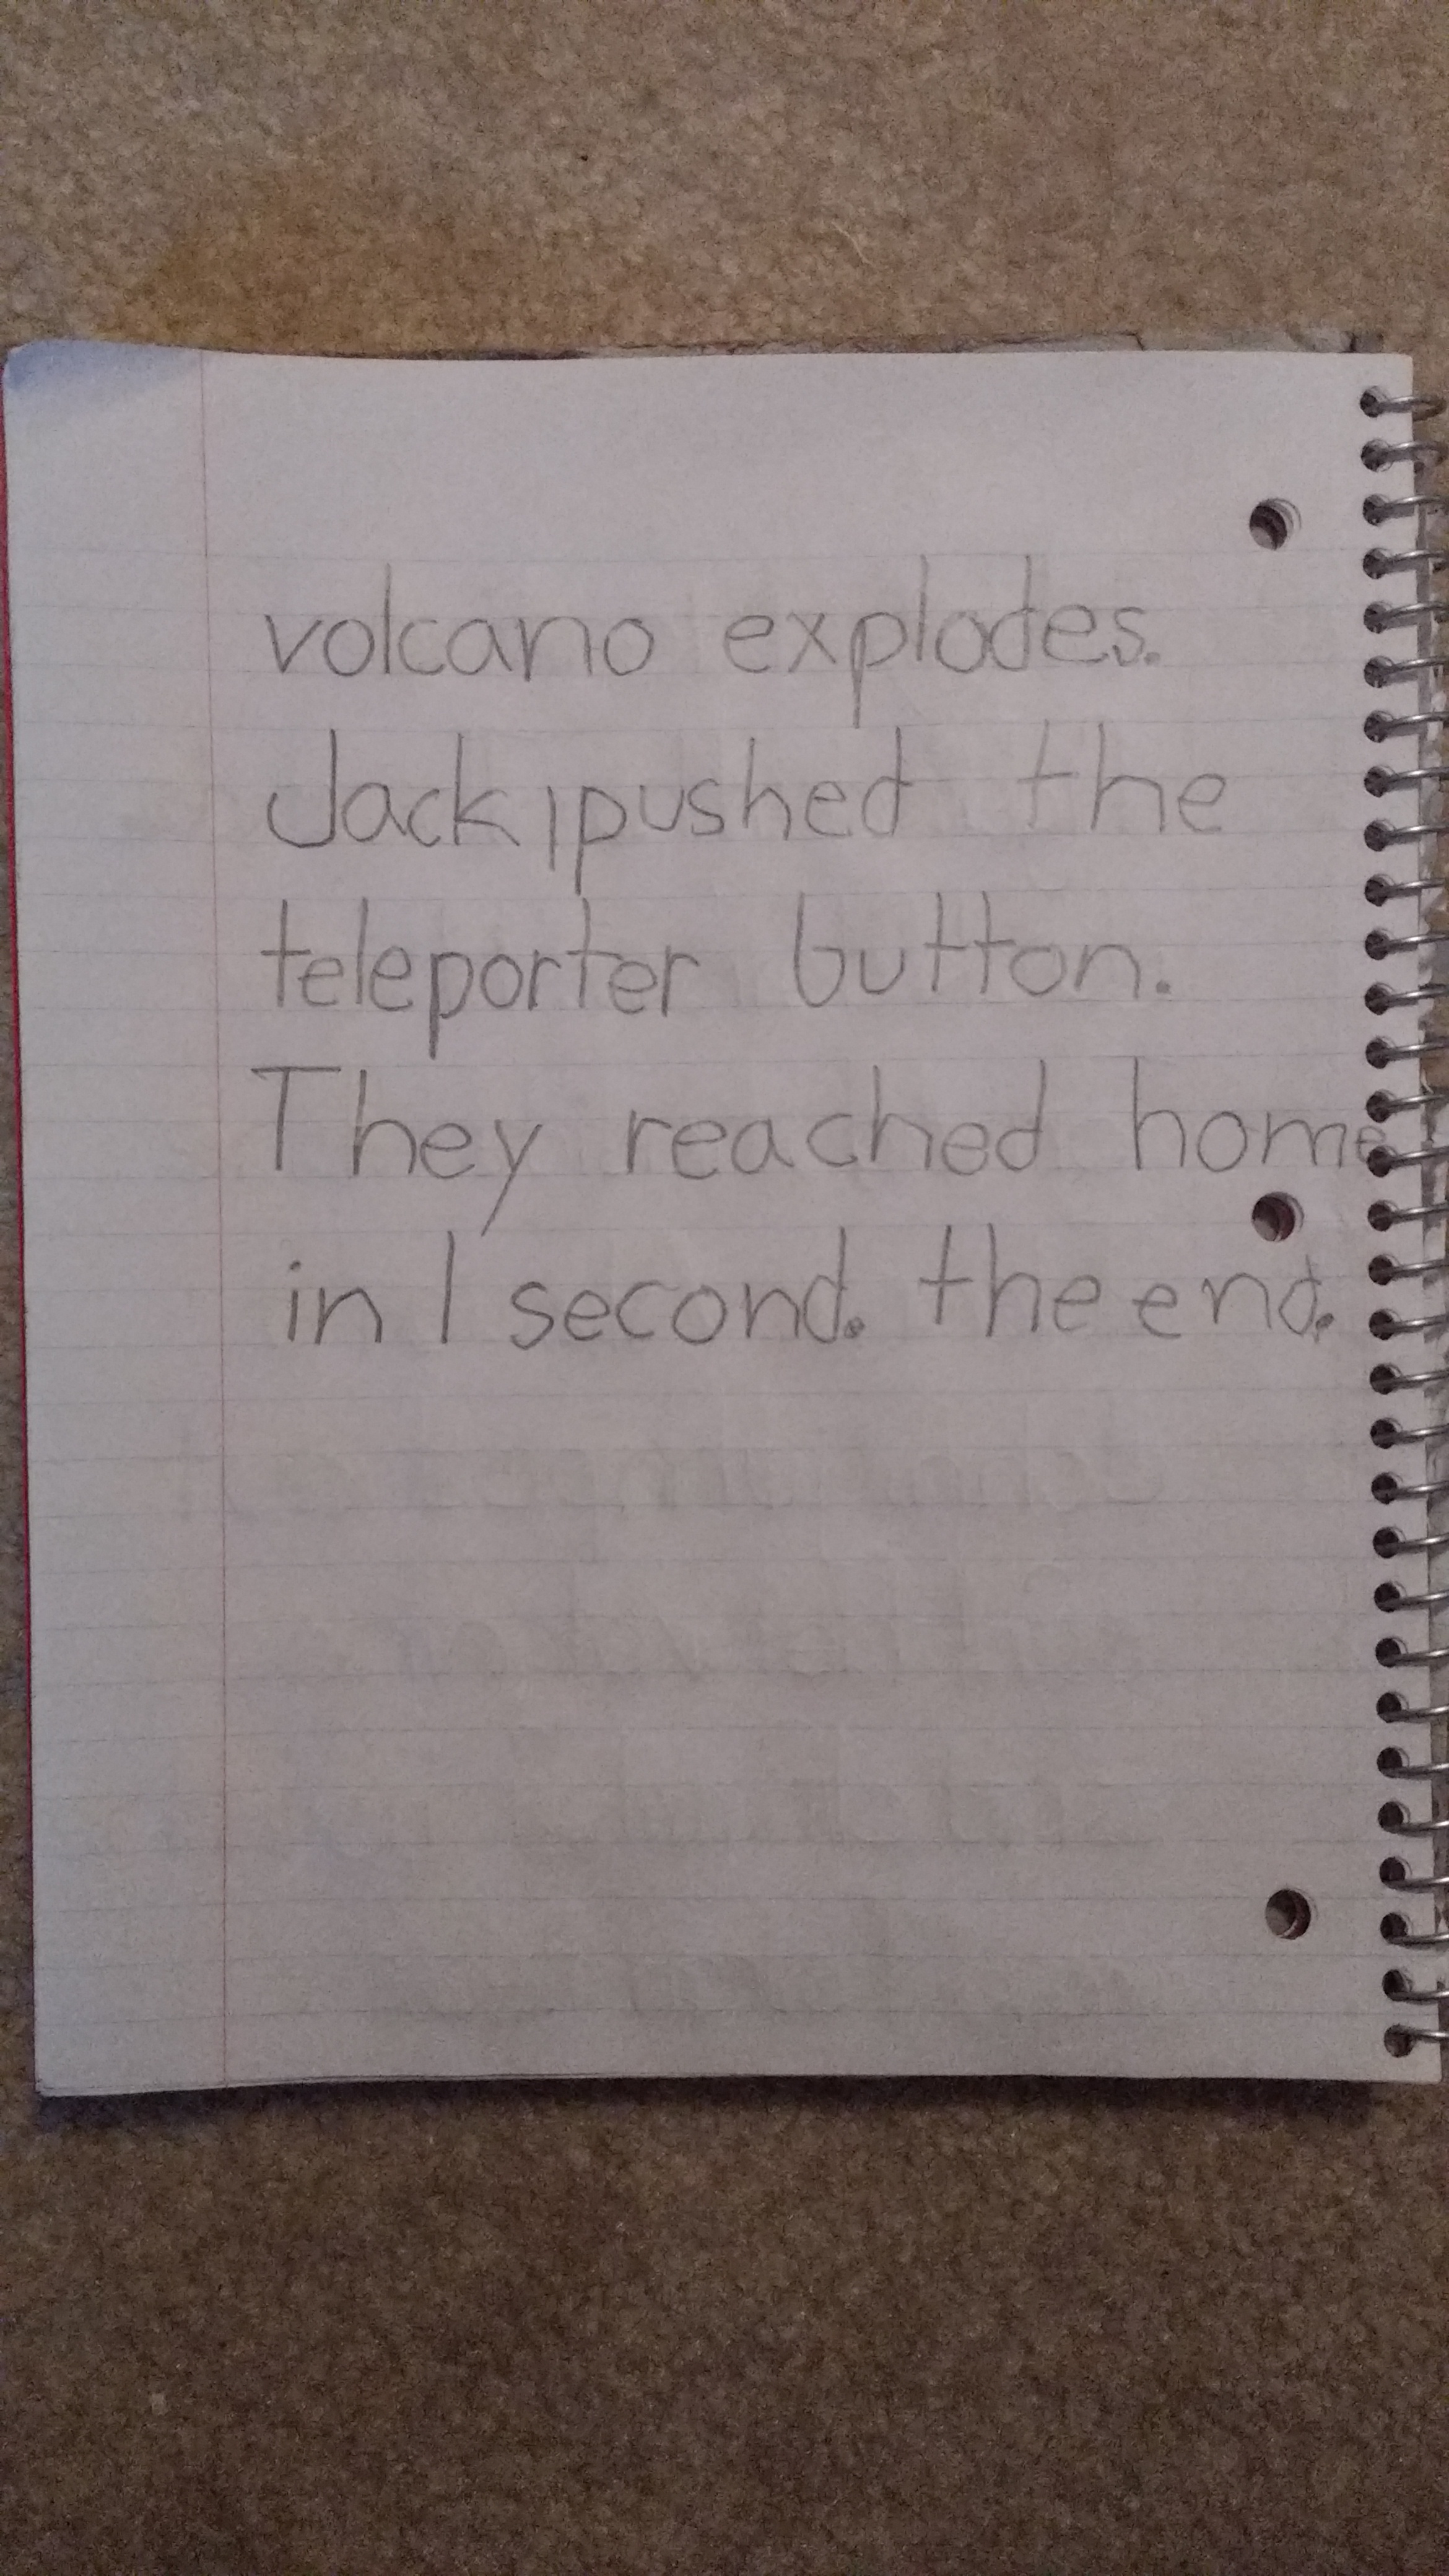 volcano explodes.
Jack pushed the
teleporter button.
They reached home
in 1 second. the end.